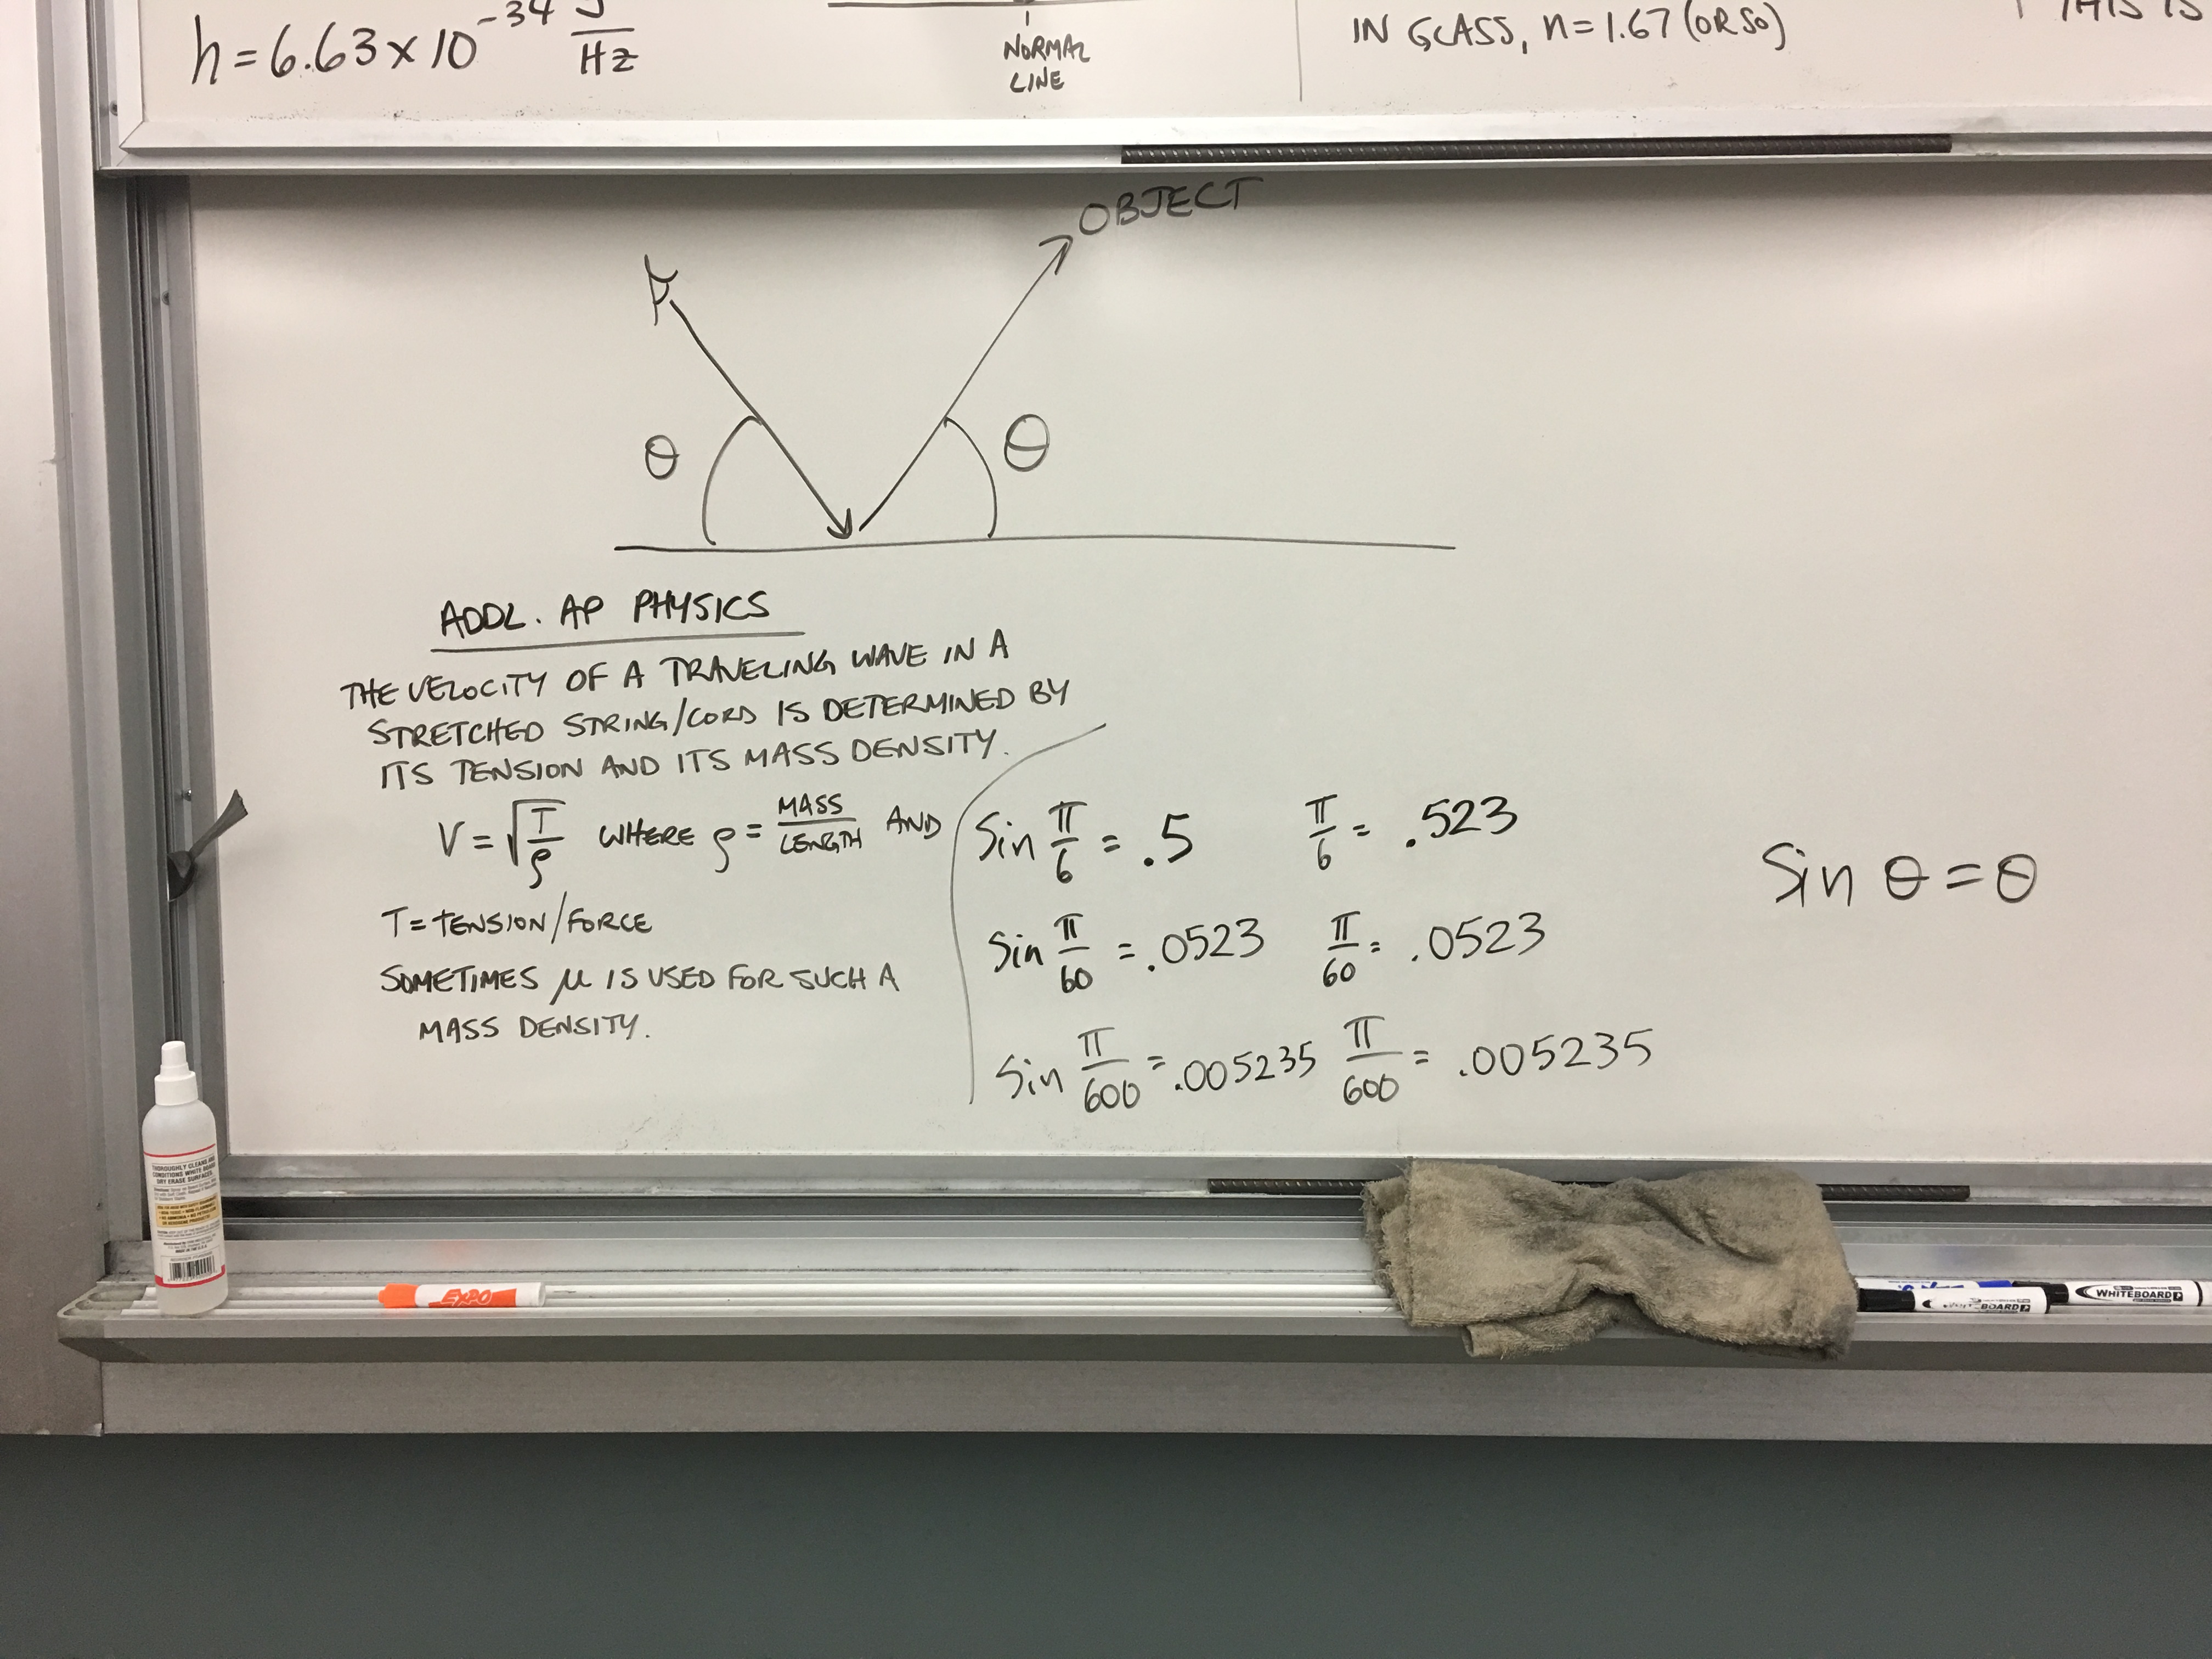 h = 6.63 x 10^-34 J/Hz
NORMAL
LINE
IN GLASS, n = 1.67 (OR SO)
THIS IS
OBJECT
θ θ
ADDL. AP PHYSICS
THE VELOCITY OF A TRAVELING WAVE IN A
STRETCHED STRING/CORD IS DETERMINED BY
ITS TENSION AND ITS MASS DENSITY.
V = √(T/ρ) WHERE ρ = MASS/LENGTH AND
T = TENSION/FORCE
SOMETIMES μ IS USED FOR SUCH A
MASS DENSITY.
Sin π/6 = .5 π/6 = .523
Sin π/60 = .0523 π/60 = .0523
Sin π/600 = .005235 π/600 = .005235
Sin θ = θ
THOROUGHLY CLEANS AND
CONDITIONS WHITE BOARD
DRY ERASE SURFACES
EXPO
WHITEBOARD